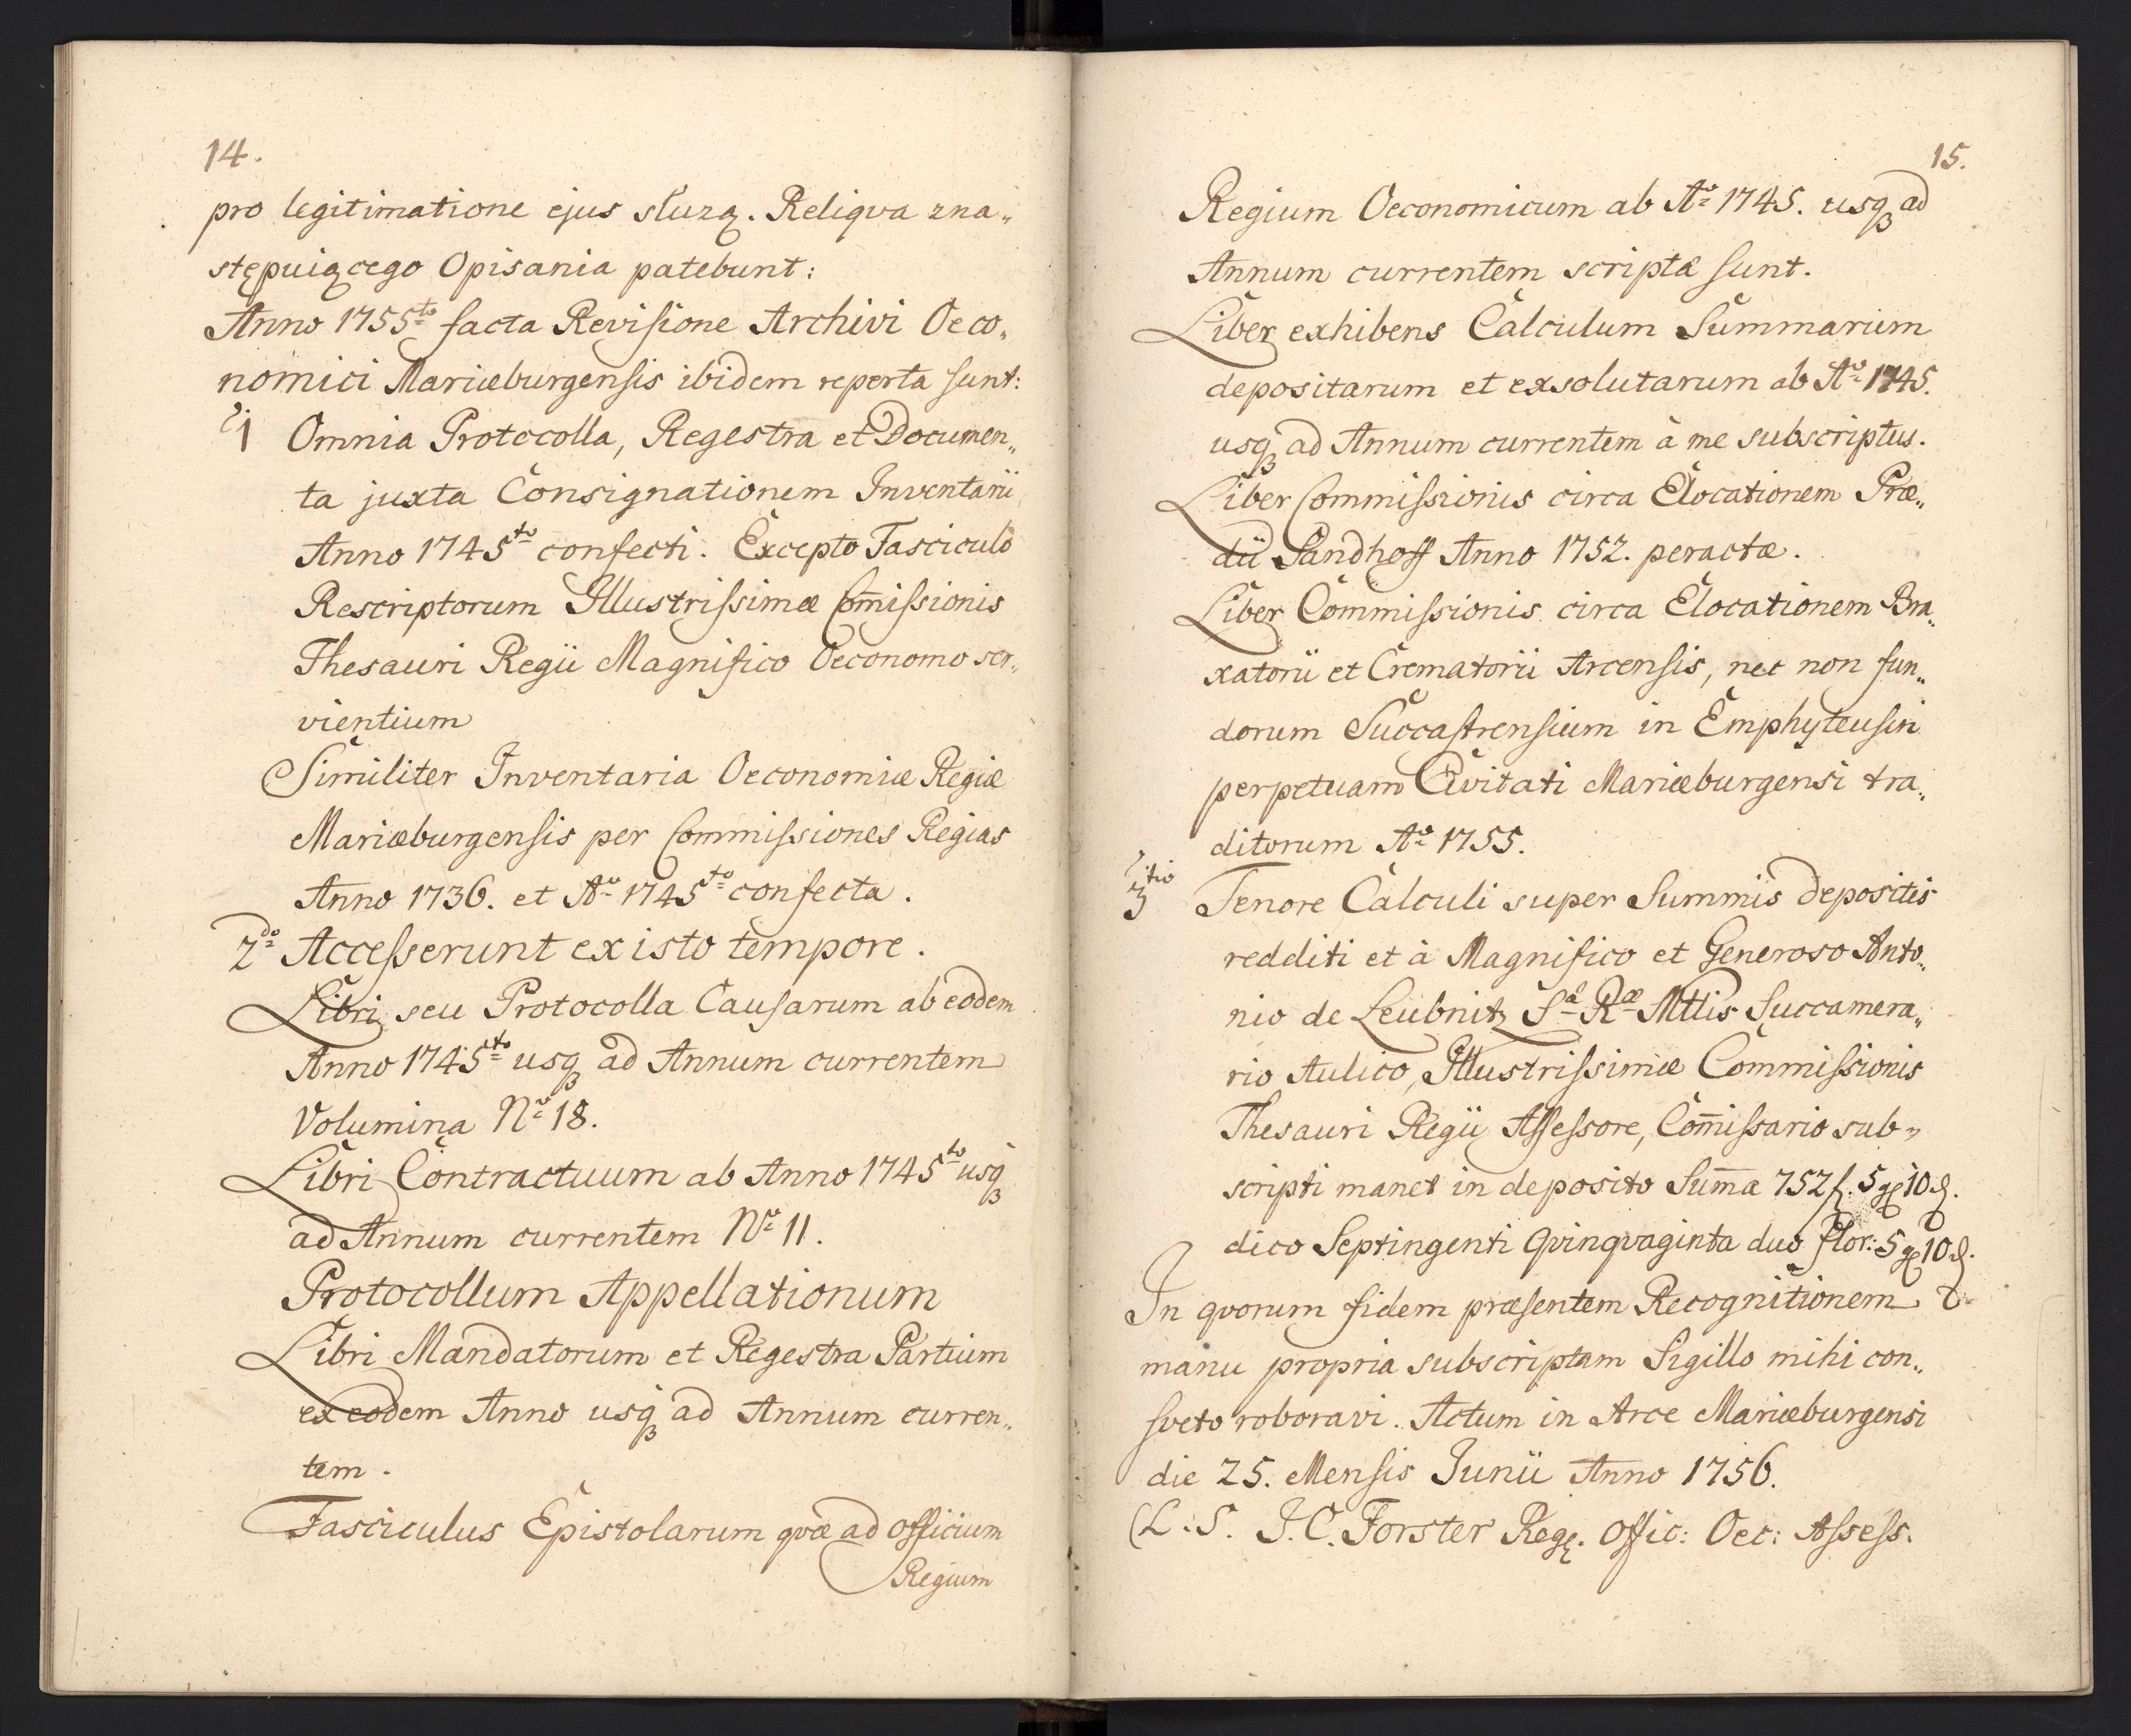 14.
pro legitimatione ejus służą. Reliqva zna„
stępuiącego Opisania patebunt:
Anno 1755to facta Revisione Archivi Oeco„
nomici Mariæburgensis ibidem reperta sunt:
1 Omnia Protocolla, Regestra et Documen„
ta juxta Consignationem Inventarii
Anno 1745to confecti. Excepto Fasciculo
Rescriptorum Illustrissimæ Com̄issionis
Thesauri Regii Magnifico Oeconomo ser„
vientium
Similiter Inventaria Oeconomiæ Regiæ
Mariæburgensis per Commissiones Regias
Anno 1736. et Ao 1745to confecta.
2do Accesserunt ex isto tempore.
Libri seu Protocolla Causarum ab eodem
Anno 1745to usqꝫ ad Annum currentem
Volumina No 18.
Libri Contractuum ab Anno 1745to usqꝫ
ad Annum currentem No 11.
Protocollum Appellationum
Libri Mandatorum et Regestra Partium
ex eodem Anno usqꝫ ad Annum curren„
tem.
Fasciculus Epistolarum qvæ ad officium
Regium
15.
Regium Oeconomicum ab Ao 1745. usqꝫ ad
Annum currentem scriptæ sunt.
Liber exhibens Calculum Summarum
depositarum et exsolutarum ab Ao 1745.
usqꝫ ad Annum currentem à me subscriptus.
Liber Commissionis circa Elocationem Præ„
dii Sandhoff Anno 1752. peractæ.
Liber Commissionis circa Elocationem Bra„
xatorii et Crematorii Arcensis, nec non fun„
dorum Succastrensium in Emphyteusin
perpetuam Civitati Mariæburgensi tra„
ditorum Ao 1755.
3tio Tenore Calculi super Summis depositis
redditi et à Magnifico et Generoso Anto„
nio de Leubnitz Sæ Ræ Mttis Succamera„
rio Aulico, Illustrissimæ Commissionis
Thesauri Regii Assessore, Com̄issario sub„
scripti manet in deposito Sum̄a 752 f. 5 g 10 d.
dico Septingenti Qvinqvaginta duo flor: 5 g 10 d.
In qvorum fidem præsentem Recognitionem
manu propria subscriptam Sigillo mihi con„
sveto roboravi. Actum in Arce Mariæburgensi
die 25. Mensis Junii Anno 1756.
(L: S. J. C. Forster Reg. Offic: Oec: Assess.